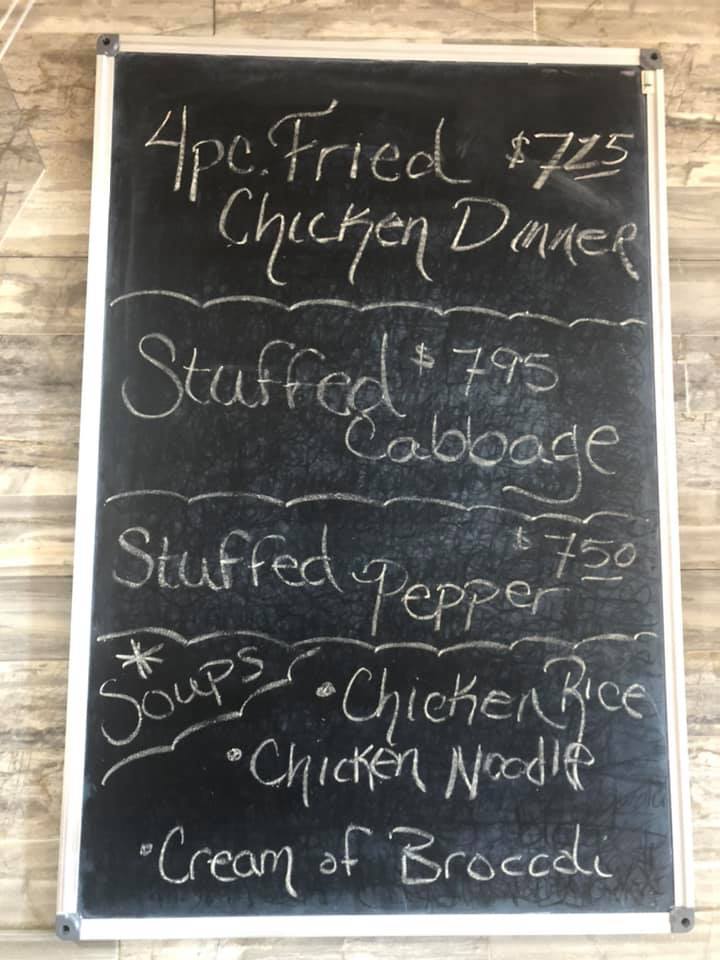 4pc. Fried $7.25
Chicken Dinner
Stuffed $795
Cabbage
Stuffed $750
Pepper
* Soups
• Chicken Rice
• Chicken Noodle
• Cream of Broccoli